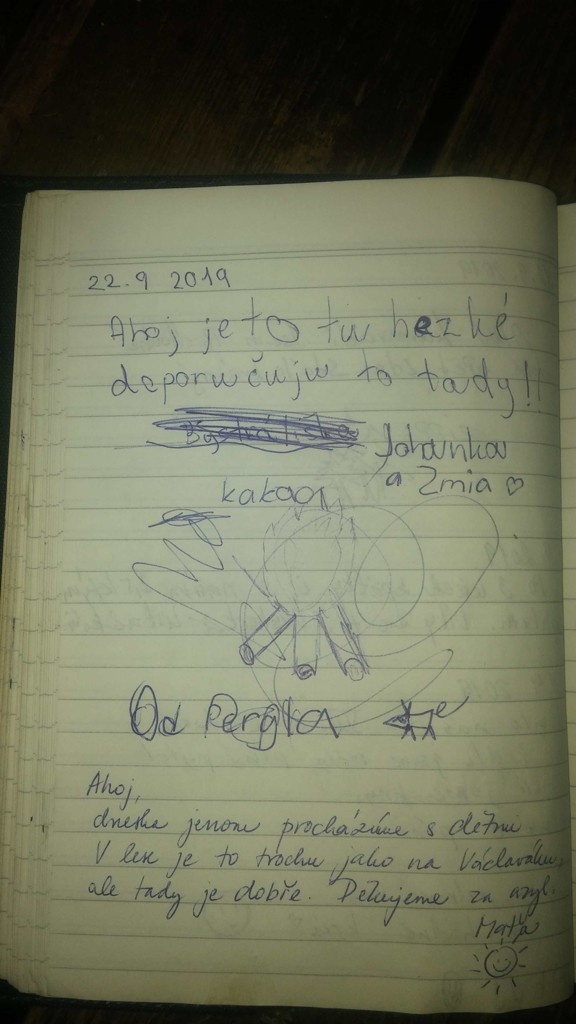 22.9 2019
Ahoj je to tu hezké
doporučuju to tady!!
Johanka
a Zmia ♡
kakaa
Od
Ahoj,
dneska jenom procházíme s dětmi
V lese je to trochu jako na Václaváku,
ale tady je dobře. Děkujeme za azyl.
Maťa